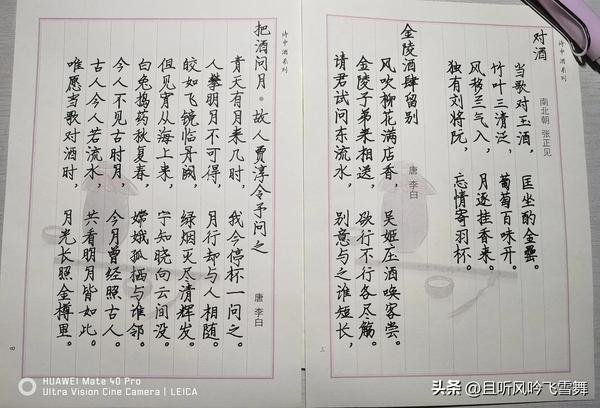 诗中酒系列
对酒
南北朝 张正见
当歌对玉酒，匡坐酌金罍。
竹叶三清泛，葡萄百味开。
风移兰气入，月逐桂香来。
独有刘将阮，忘情寄羽杯。
金陵酒肆留别
唐 李白
风吹柳花满店春，吴姬压酒唤客尝。
金陵子弟来相送，欲行不行各尽觞。
请君试问东流水，别意与之谁短长，
诗中酒系列
把酒问月。故人贾淳令予问之
唐 李白
青天有月来几时，我今停杯一问之。
人攀明月不可得，月行却与人相随。
皎如飞镜临丹阙，绿烟灭尽清辉发。
但见宵从海上来，宁知晓向云间没。
白兔捣药秋复春，嫦娥孤栖与谁邻。
今人不见古时月，今月曾经照古人。
古人今人若流水，共看明月皆如此。
唯愿当歌对酒时，月光长照金樽里。
HUAWEI Mate 40 Pro
Ultra Vision Cine Camera | LEICA
头条 @且听风吟飞雪舞